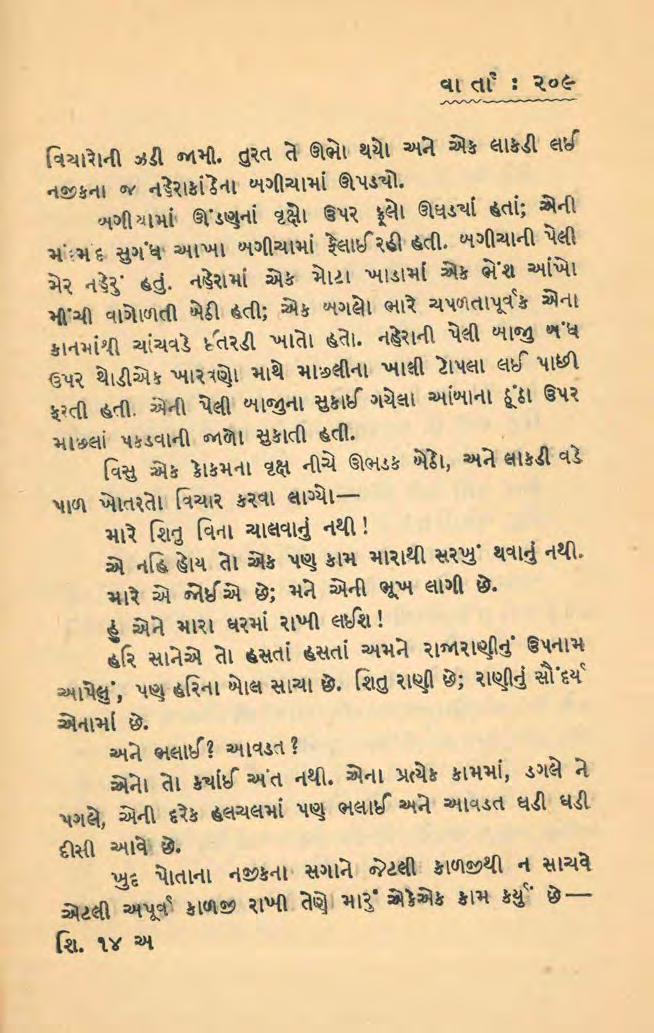 વાર્તા : ૨૦૯
વિચારોની ઝડી જામી. તુરત તે ઊભો થયો અને એક લાકડી લઈ
નજીકના જ નહેરાકાંઠેના બગીચામાં ઊપડ્યો.
બગીચામાં ઊંડણુનાં વૃક્ષો ઉપર ફૂલો ઊઘડ્યાં હતાં; એની
મંદમંદ સુગંધ આખા બગીચામાં ફેલાઈ રહી હતી. બગીચાની પેલી
મેર નહેરું હતું. નહેરામાં એક મોટા ખાડામાં એક ભેંશ આંખો
મીંચી વાગોળતી બેઠી હતી; એક બગલો ભારે ચપળતાપૂર્વક એના
કાનમાંથી ચાંચવડે ઈતરડી ખાતો હતો. નહેરાની પેલી બાજુ બંધ
ઉપર થોડીએક ખારવણો માથે માછલીના ખાલી ટોપલા લઈ પાછી
ફરતી હતી. એની પેલી બાજુના સુકાઈ ગયેલા આંબાના ઠૂંઠા ઉપર
માછલાં પકડવાની જાળો સુકાતી હતી.
વિસુ એક કોકમના વૃક્ષ નીચે ઊભડક બેઠો, અને લાકડી વડે
પાળ ખોતરતો વિચાર કરવા લાગ્યો—
મારે શિતુ વિના ચાલવાનું નથી !
એ નહિ હોય તો એક પણ કામ મારાથી સરખું થવાનું નથી.
મારે એ જોઈએ છે; મને એની ભૂખ લાગી છે.
હું એને મારા ઘરમાં રાખી લઈશ !
હરિ સાનેએ તો હસતાં હસતાં અમને રાજારાણીનું ઉપનામ
આપેલું, પણ હરિના બોલ સાચા છે. શિતુ રાણી છે; રાણીનું સૌંદર્ય
એનામાં છે.
અને ભલાઈ? આવડત?
એનો તો ક્યાંઈ અંત નથી. એના પ્રત્યેક કામમાં, ડગલે ને
પગલે, એની દરેક હલચલમાં પણ ભલાઈ અને આવડત ઘડી ઘડી
દીસી આવે છે.
ખુદ પોતાના નજીકના સગાને જેટલી કાળજીથી ન સાચવે
એટલી અપૂર્વ કાળજી રાખી તેણે મારું એકેએક કામ કર્યું છે—
શિ. ૧૪ અ